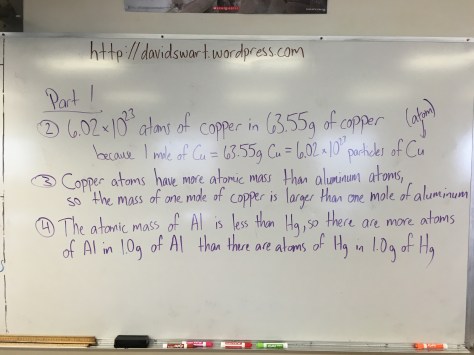 http://davidswart.wordpress.com
Part 1
② 6.02×10²³ atoms of copper in 63.55g of copper (atom)
because 1 mole of Cu = 63.55g Cu = 6.02×10²³ particles of Cu
③ Copper atoms have more atomic mass than aluminum atoms,
so the mass of one mole of copper is larger than one mole of aluminum
④ The atomic mass of Al is less than Hg, so there are more atoms
of Al in 1.0g of Al than there are atoms of Hg in 1.0g of Hg